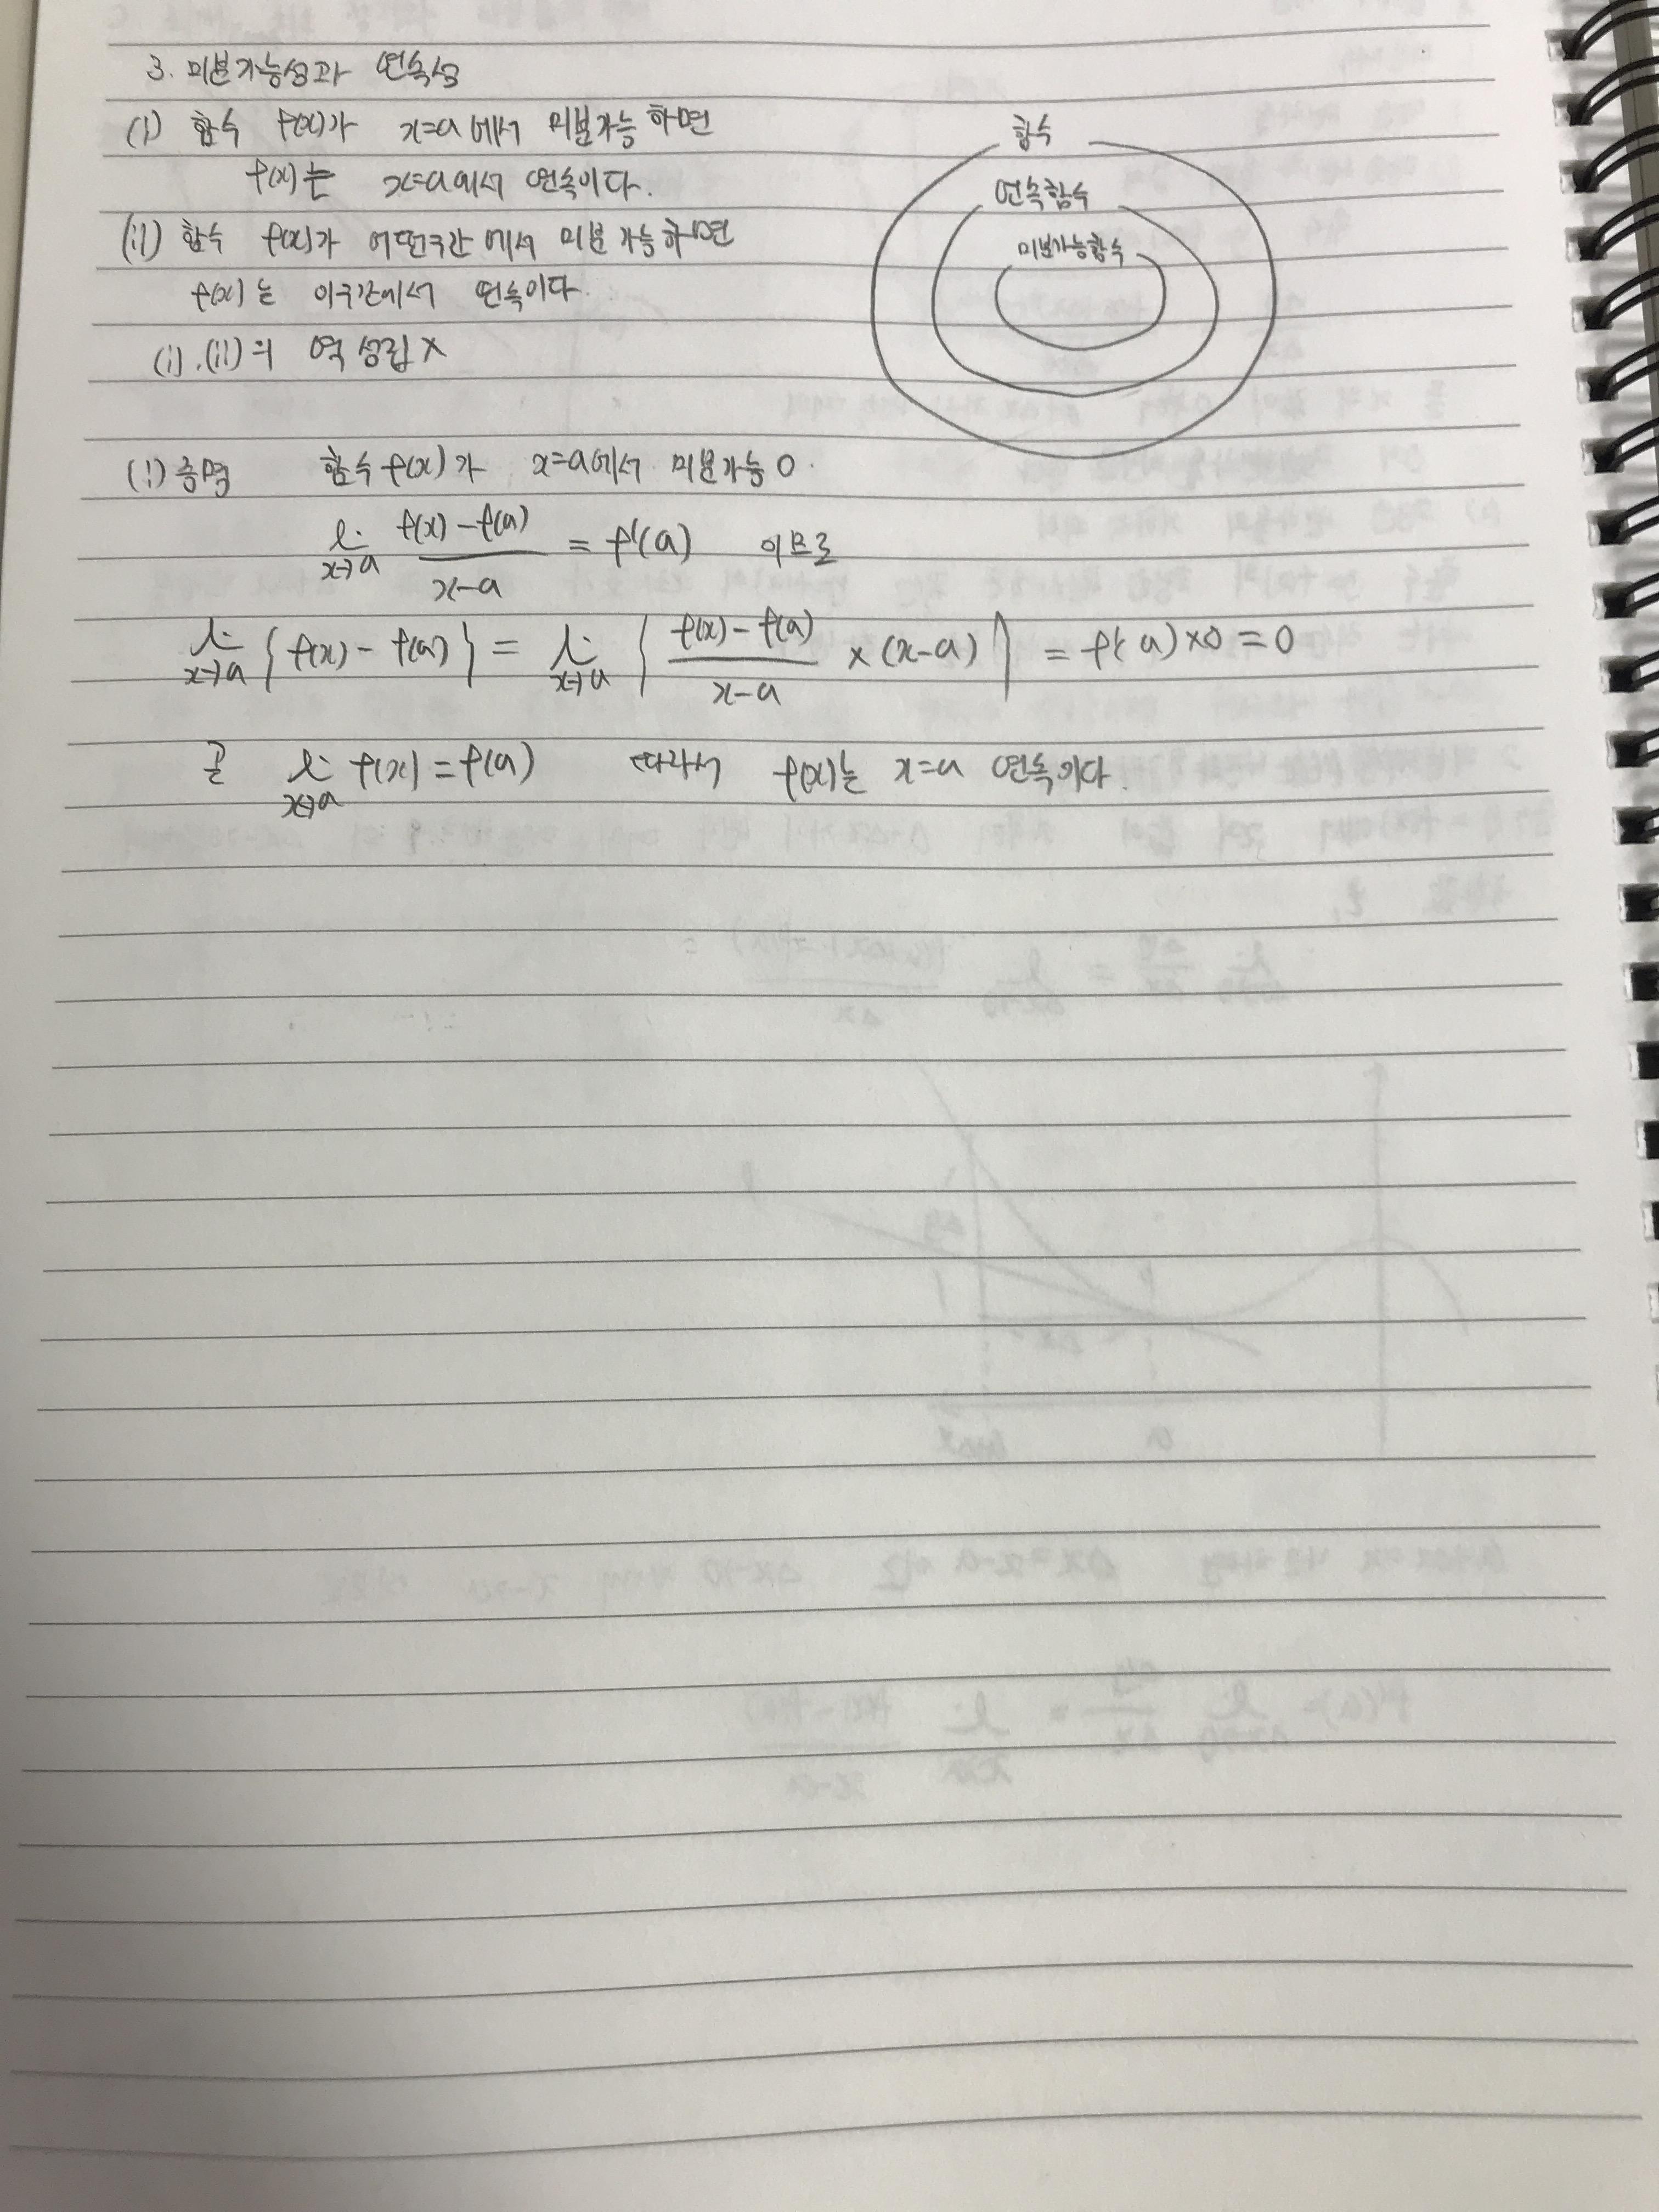 3. 미분가능성과 연속성
(i) 함수 f(x)가 x=a에서 미분가능하면
f(x)는 x=a에서 연속이다.
(ii) 함수 f(x)가 어떤구간에서 미분가능하면
f(x)는 이구간에서 연속이다.
(i), (ii)의 역 성립 X
함수
연속함수
미분가능함수
(i) 증명 함수 f(x)가 x=a에서 미분가능 O.
lim x→a f(x)-f(a) / x-a = f'(a) 이므로
lim x→a {f(x)-f(a)} = lim x→a { f(x)-f(a) / x-a × (x-a) } = f'(a)×0=0
곧 lim x→a f(x)=f(a) 따라서 f(x)는 x=a 연속이다.